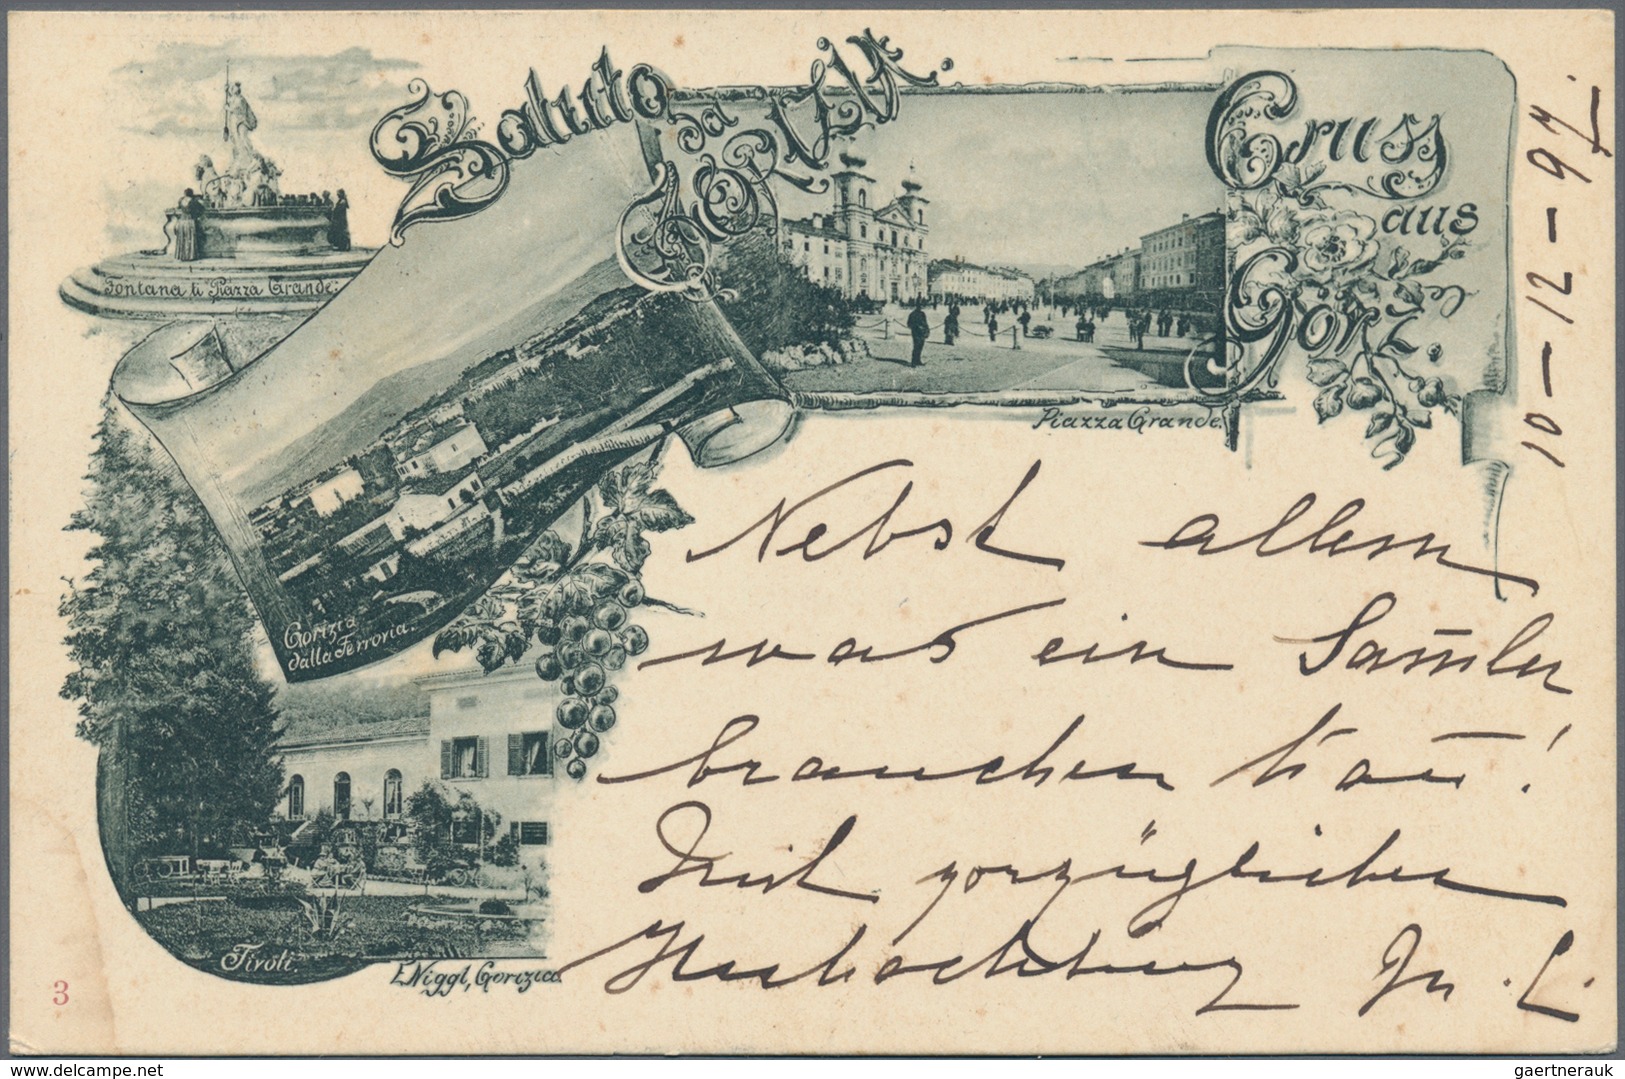 Saluto
da
GORIZIA.
Gruss
aus
Görz.
10-12-97.
Fontana di Piazza Grande.
Piazza Grande.
Gorizia
dalla Ferrovia.
Nebst allem
was ein Sam̄ler
brauchen kan̄!
Mit vorzüglicher
Hochachtung
Tivoli.
E. Niggl, Gorizia
3
delcampe.net
gaertnerauk